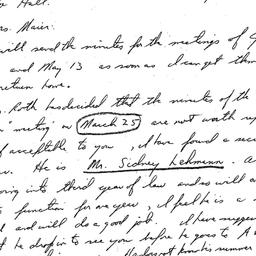 Hall.
Mrs. Maier:
will send the minutes for the meetings of
and May 13 as soon as I can get them
return here.
Roth has decided that the minutes of the
"meeting" on March 25 are not worth
if acceptable to you, I have found a
He is Mr. Sidney Lehmann.
going into third year of law and so will
to function for one year, I feel he is a
and will do a good job. I have
he drop in to see you before he goes to
his summer